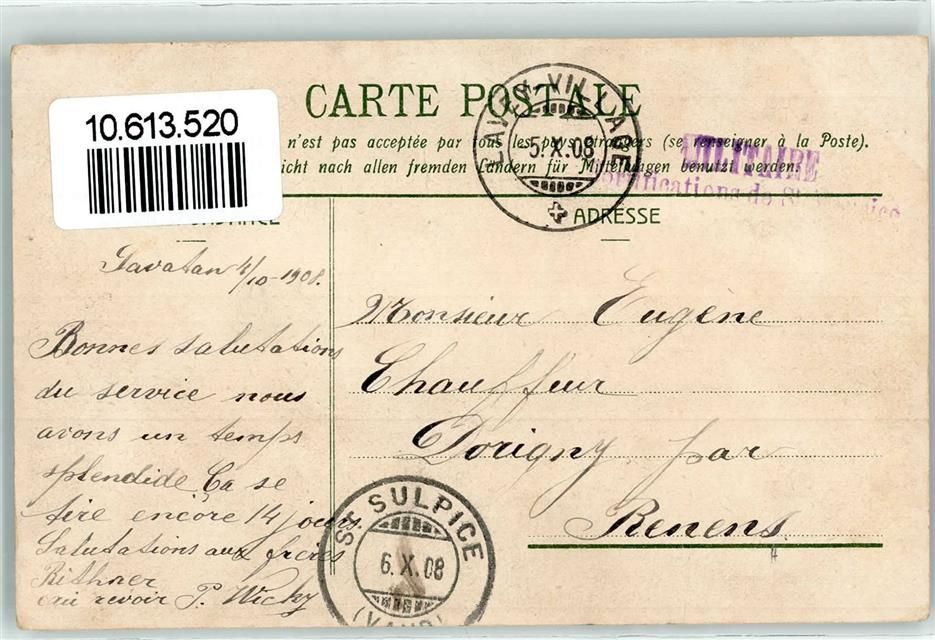 10.613.520
CARTE POSTALE
n'est pas acceptée par tous les pays étrangers (se renseigner à la Poste).
nicht nach allen fremden Ländern für Mitteilungen benutzt werden.
LAVEY-VILLAGE
5.X.08
MILITAIRE
Fortifications de St
ADRESSE
Savatan 4/10-1908.
Bonnes salutations
du service nous
avons un temps
splendide Ça se
tire encore 14 jours.
Salutations aux frères
Rithner
au revoir P. Wicky
Monsieur Eugène
Chauffeur
Dorigny par
Renens
ST SULPICE
6.X.08
(VAUD)